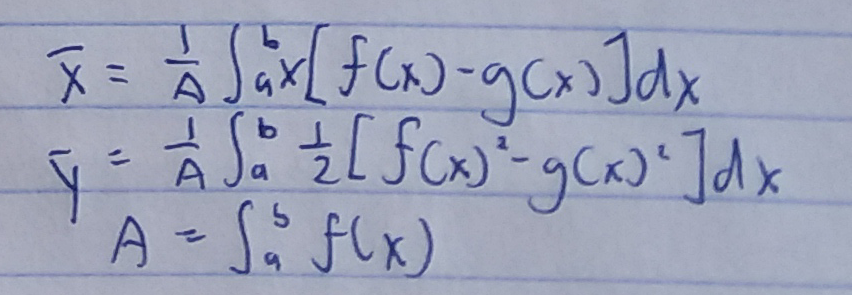 x̄ = 1/A ∫ₐᵇ x[f(x) - g(x)]dx
ȳ = 1/A ∫ₐᵇ 1/2 [f(x)² - g(x)²]dx
A = ∫ₐᵇ f(x)